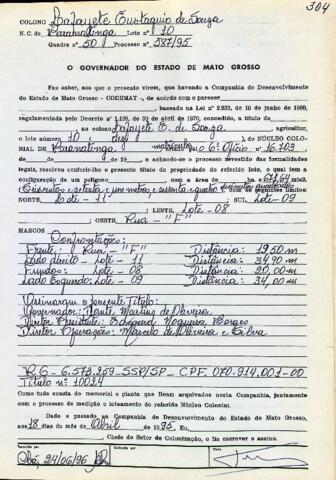 304
COLONO Lafayete Eustaquio de Souza
N. C. de Paranatinga Lote n° 10
Quadra n° 50 Processo n° 587/95
O GOVERNADOR DO ESTADO DE MATO GROSSO
Faz saber, aos que o presente virem, que havendo a Companhia de Desenvolvimento
do Estado de Mato Grosso - CODEMAT -, de acordo com o parecer
baseado na Lei n° 2.933, de 10 de junho de 1969,
regulamentada pelo Decreto n° 1.138, de 30 de abril de 1970, concedido, a título de
ao colono Lafayete E. de Souza, agricultor,
o lote número 10 do NÚCLEO COLO-
NIAL DE Paranatinga matricula no 6º Ofício nº 16.703
de de 19 , e achando-se o processo revestido das formalidades
legais, resolveu conferir-lhe o presente título de propriedade do referido lote, o qual tem a
configuração de um polígono com a área de 671,64
Seiscentos e setenta e um metros, e sessenta e quatro com os seguintes limites:
NORTE, Lote - 11 SUL Lote - 09
LESTE, Lote - 08
OESTE, Rua - "F"
MARCOS Confrontações:
Frente: Rua "F" Distância: 19,50 m
Lado direito - Lote - 11 Distância: 34,90 m
Fundos: - Lote - 08 Distância: 20,00 m
Lado Esquerdo: - Lote - 09 Distância: 34,00 m
Assinaram o presente Título:
Governador: Dante Martins de Oliveira
Diretor Presidente: Edegard Nogueira Borges
Diretor Operações: Marcelo de Oliveira e Silva
RG - 6.573.259-SSP/SP - CPF 070.914.001-00
Título nº 10024
Como tudo consta do memorial e planta que ficam arquivados nesta Companhia, juntamente
com o processo de medição e loteamento do referido Núcleo Colonial.
Dado e passado na Companhia de Desenvolvimento do Estado de Mato Grosso,
aos 18 dias do mês de Abril de 1995. Eu,
Chefe do Setor de Colonização, o fiz escrever e assino.
Cbá, 24/06/96
Visto